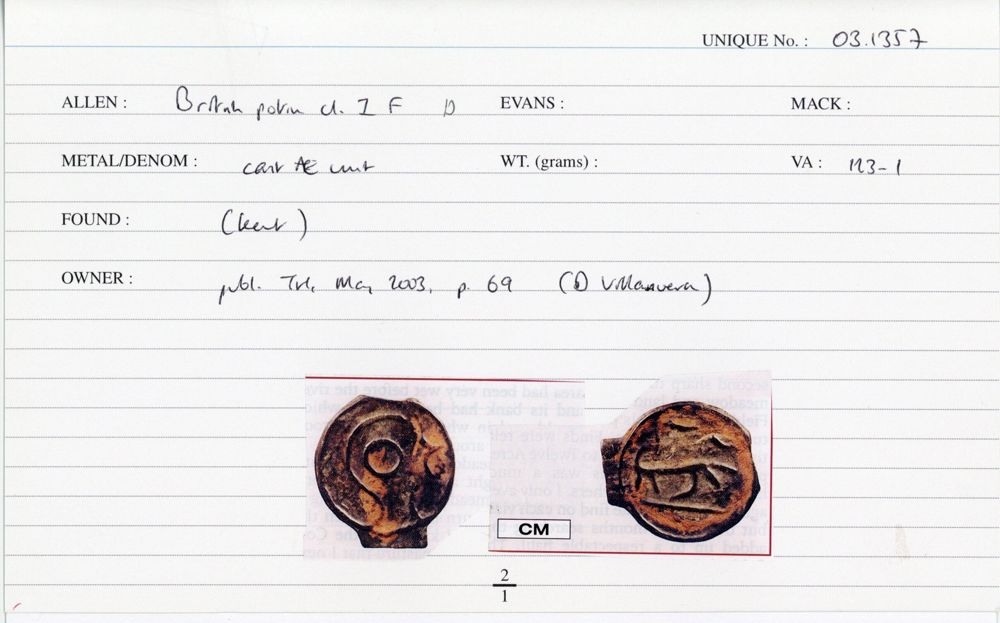 UNIQUE No. : 03.1357
ALLEN : British potin cl. I F D EVANS : MACK :
METAL/DENOM : cast Æ unit WT. (grams) : VA : 123-1
FOUND : (Kent)
OWNER : publ. TH, May 2003, p. 69 (D Villanueva)
CM
2
1